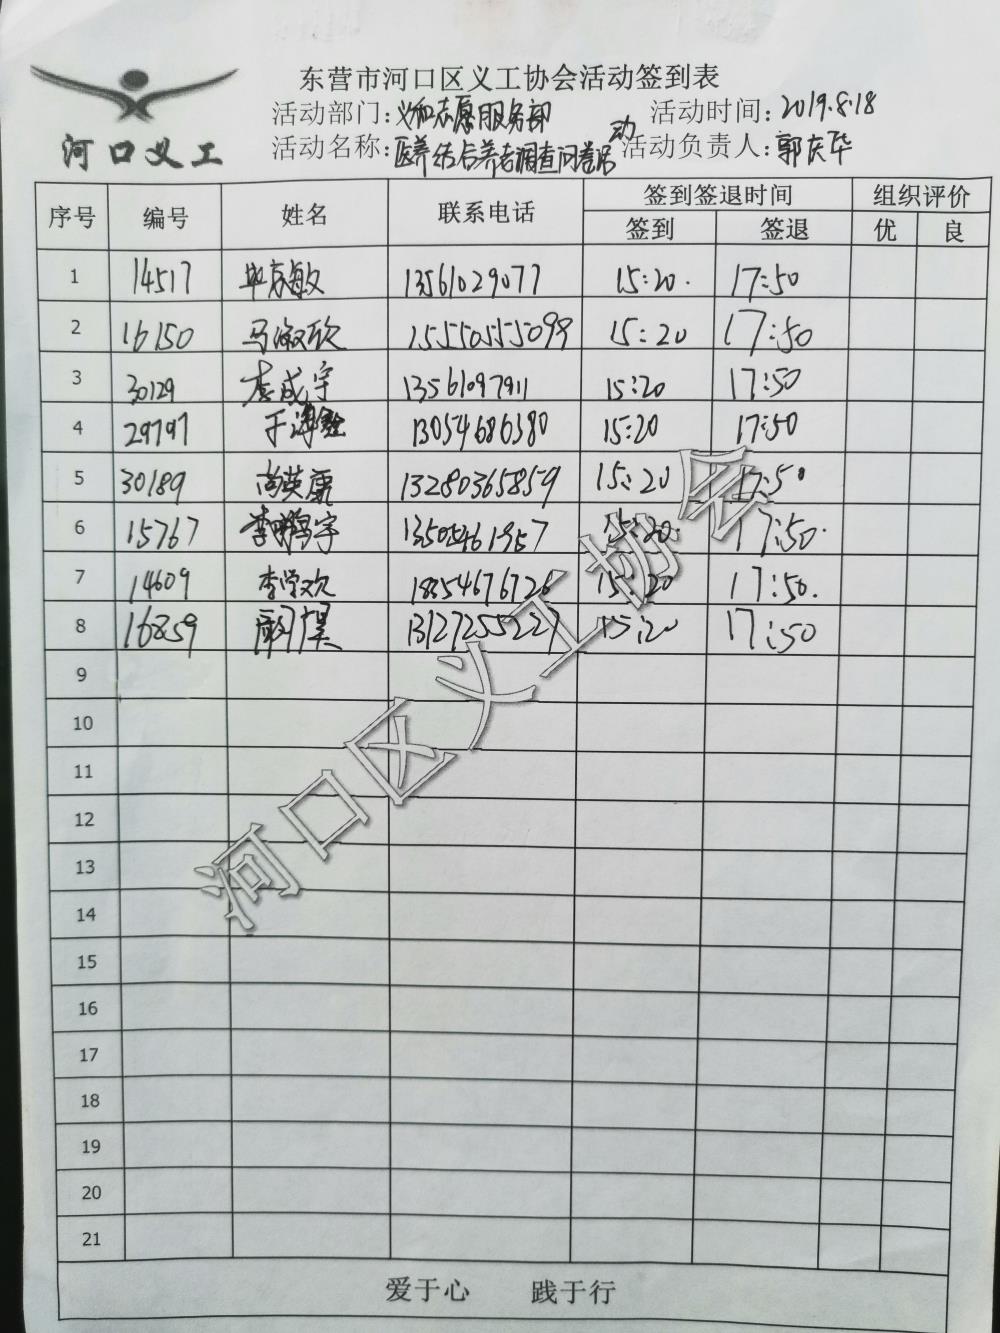 东营市河口区义工协会活动签到表
河口义工
活动部门:义和志愿服务部 活动时间:2019.8.18
活动名称:医养结合养老调查问卷活动 活动负责人:郭庆华
序号 编号 姓名 联系电话 签到签退时间 组织评价
签到 签退 优 良
1 14517 敏 13561029077 15:20. 17:50
2 16150 马淑欣 15550555099 15:20 17:50
3 30129 李成宇 13561097911 15:20 17:50
4 29797 于 13054686380 15:20 17:50
5 30189 尚英康 13280365859 15:20 17:50
6 15767 李鹏宇 15:20. 17:50.
7 14609 李学欢 18854676726 15:20 17:50.
8 16859 13127255227 15:20 17:50
9
10
11
12
13
14
15
16
17
18
19
20
21
爱于心 践于行
河口区义工协会